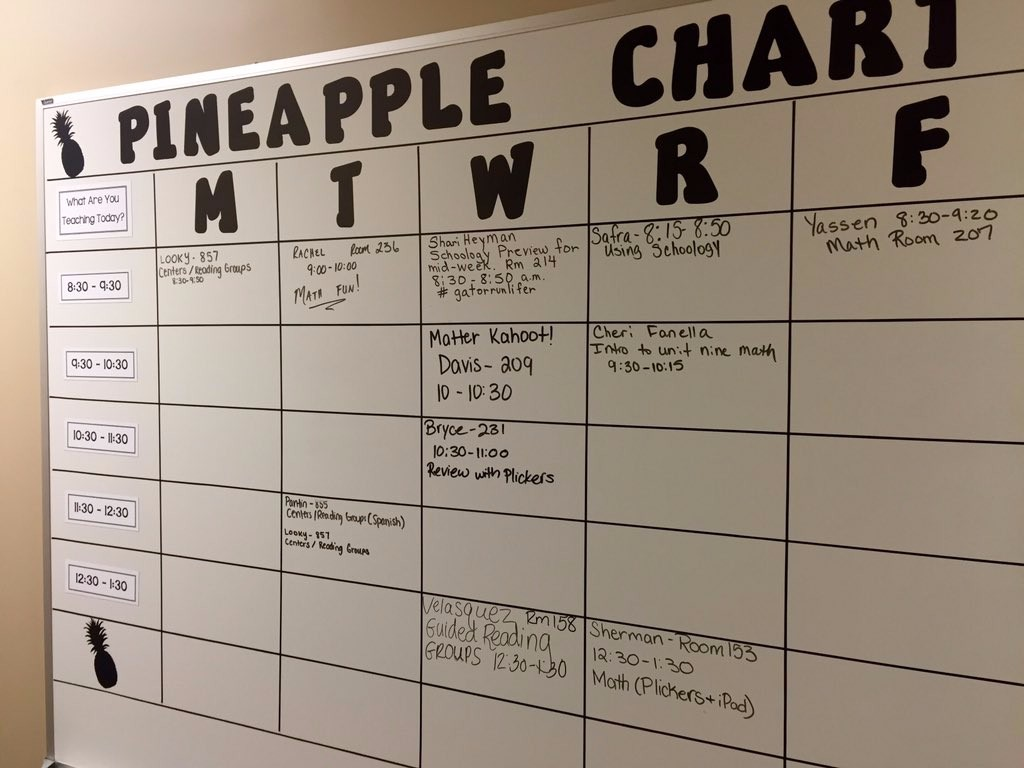 PINEAPPLE CHART
What Are You
Teaching Today?
M
T
W
R
F
8:30 - 9:30
LOOKY - 857
Centers / Reading Groups
8:30-9:50
RACHEL ROOM 236
9:00-10:00
MATH FUN!
Shari Heyman
Schoology Preview for
mid-week. Rm 214
8:30-8:50 a.m.
# gatorrunlifer
Safra- 8:15-8:50
Using Schoology
Yassen 8:30-9:20
Math Room 207
9:30 - 10:30
Matter Kahoot!
Davis- 209
10 - 10:30
Cheri Fanella
Intro to unit nine math
9:30-10:15
10:30 - 11:30
Bryce-231
10:30-11:00
Review with Plickers
11:30 - 12:30
Pantin - 855
Centers/Reading Groups (Spanish)
Looky - 857
Centers / Reading Groups
12:30 - 1:30
Velasquez Rm 158
Guided Reading
GROUPS 12:30-1:30
Sherman - Room 153
12:30-1:30
Math (Plickers + iPad)